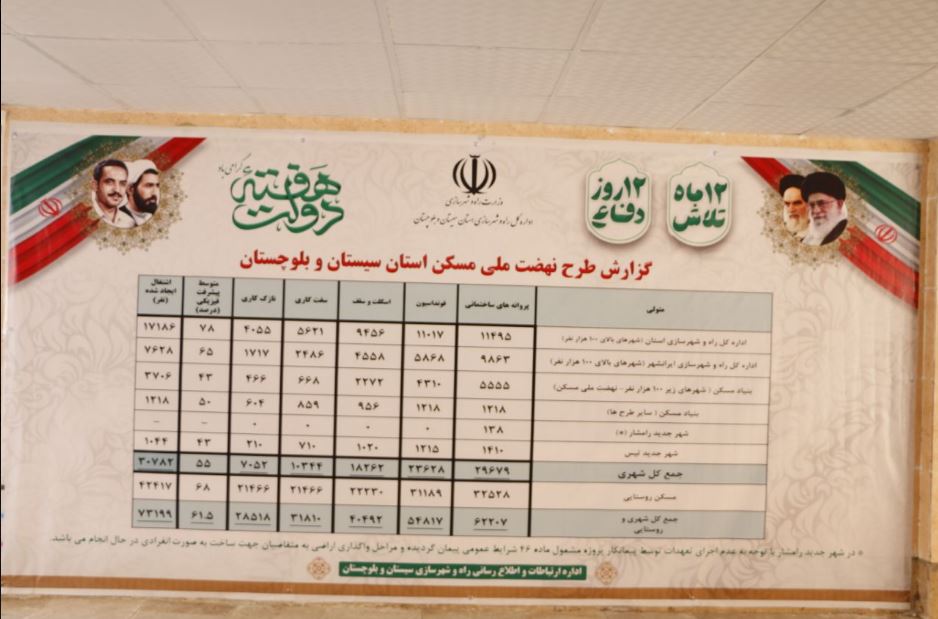 هفته دولت گرامی باد
وزارت راه و شهرسازی
اداره کل راه و شهرسازی استان سیستان و بلوچستان
۱۲ روز دفاع
۱۲ ماه تلاش
گزارش طرح نهضت ملی مسکن استان سیستان و بلوچستان
متولی پروانه های ساختمانی فونداسیون اسکلت و سقف سفت کاری نازک کاری متوسط پیشرفت فیزیکی (درصد) اشتغال ایجاد شده (نفر)
اداره کل راه و شهرسازی استان (شهرهای بالای ۱۰۰ هزار نفر) ۱۱۴۹۵ ۱۱۰۱۷ ۹۴۵۶ ۵۶۲۱ ۴۰۵۵ ۷۸ ۱۷۱۸۶
اداره کل راه و شهرسازی ایرانشهر (شهرهای بالای ۱۰۰ هزار نفر) ۹۸۶۳ ۵۸۶۸ ۴۵۵۸ ۲۴۸۶ ۱۷۱۷ ۶۵ ۷۶۲۸
بنیاد مسکن (شهرهای زیر ۱۰۰ هزار نفر - نهضت ملی مسکن) ۵۵۵۵ ۴۳۱۰ ۲۲۷۲ ۶۶۸ ۴۶۶ ۴۳ ۳۷۰۶
بنیاد مسکن (سایر طرح ها) ۱۲۱۸ ۱۲۱۸ ۹۵۶ ۸۵۹ ۶۰۴ ۵۰ ۱۲۱۸
شهر جدید رامشار (*) ۱۳۸ ۰ ۰ ۰ ۰ - -
شهر جدید تیس ۱۴۱۰ ۱۲۱۵ ۱۰۲۰ ۷۱۰ ۲۱۰ ۴۳ ۱۰۴۴
جمع کل شهری ۲۹۶۷۹ ۲۳۶۲۸ ۱۸۲۶۲ ۱۰۳۴۴ ۷۰۵۲ ۵۵ ۳۰۷۸۲
مسکن روستایی ۳۲۵۲۸ ۳۱۱۸۹ ۲۲۲۳۰ ۲۱۴۶۶ ۲۱۴۶۶ ۶۸ ۴۲۴۱۷
جمع کل شهری و روستایی ۶۲۲۰۷ ۵۴۸۱۷ ۴۰۴۹۲ ۳۱۸۱۰ ۲۸۵۱۸ ۶۱.۵ ۷۳۱۹۹
* در شهر جدید رامشار با توجه به عدم اجرای تعهدات توسط پیمانکار پروژه مشمول ماده ۴۶ شرایط عمومی پیمان گردیده و مراحل واگذاری اراضی به متقاضیان جهت ساخت به صورت انفرادی در حال انجام می باشد.
اداره ارتباطات و اطلاع رسانی راه و شهرسازی سیستان و بلوچستان